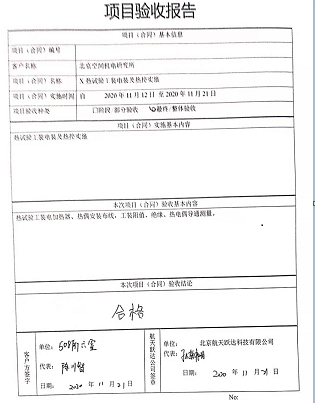 项目验收报告
项目（合同）基本信息
项目（合同）编号
客户名称 北京空间机电研究所
项目（合同）名称 X热试验工装电装及热控实施
项目（合同）实施时间 自 2020年11月12日至2020年11月21日
项目验收种类 □阶段/部分验收 最终/整体验收
项目（合同）实施基本内容
热试验工装电装及热控实施
本次项目（合同）验收基本内容
热试验工装电加热器、热偶安装布线，工装阻值、绝缘、热电偶导通测量。
本次项目（合同）验收结论
合格
客户方签字
单位：508所六室
代表：
日期：2020年11月21日
航天跃达公司签章
单位：北京航天跃达科技有限公司
代表：
日期：2020年11月21日
No: